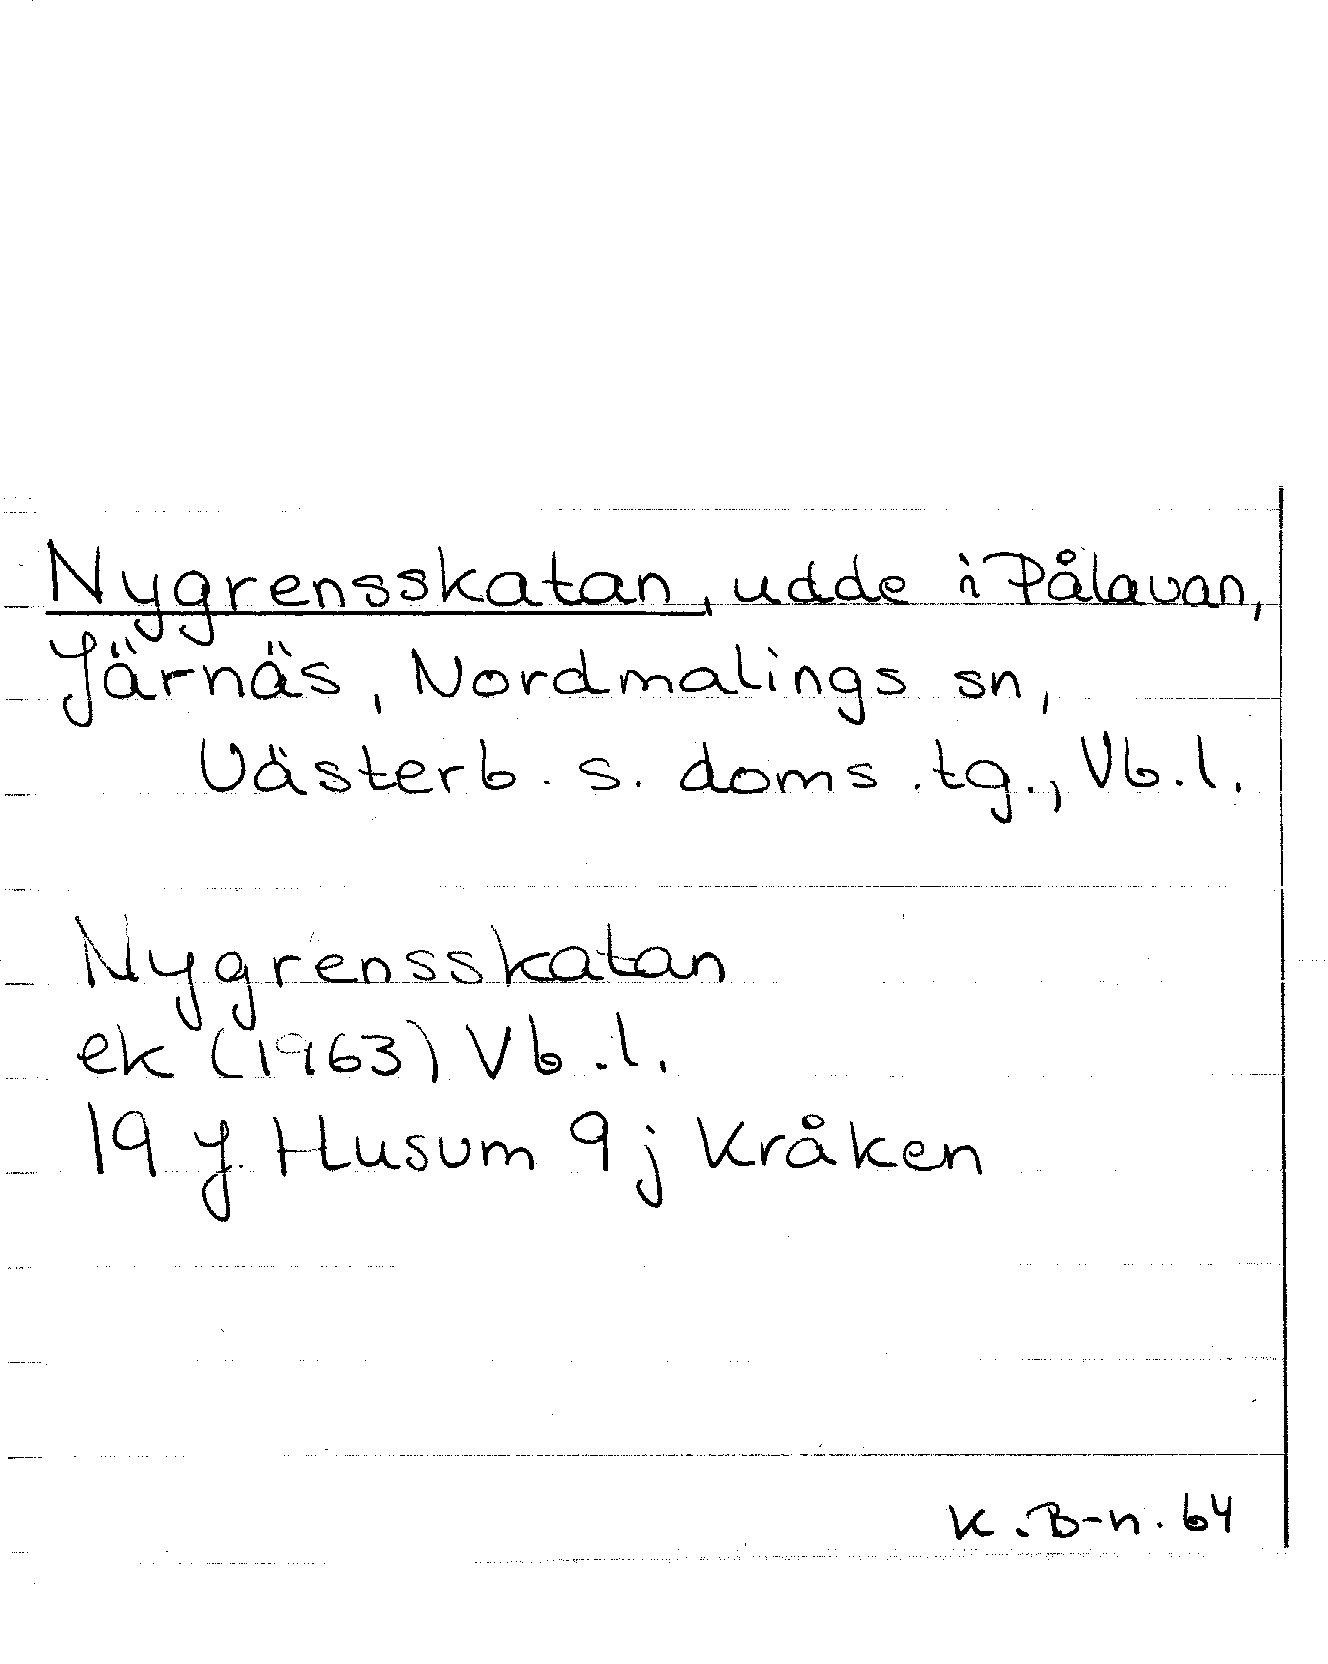 Nygrensskatan, udde i Pålavan,
Järnäs, Nordmalings sn,
Västerb. s. doms.tg., Vb.l.
Nygrensskatan
ek (1963) Vb.l.
19 J Husum 9j Kråken
K.B-n. 64